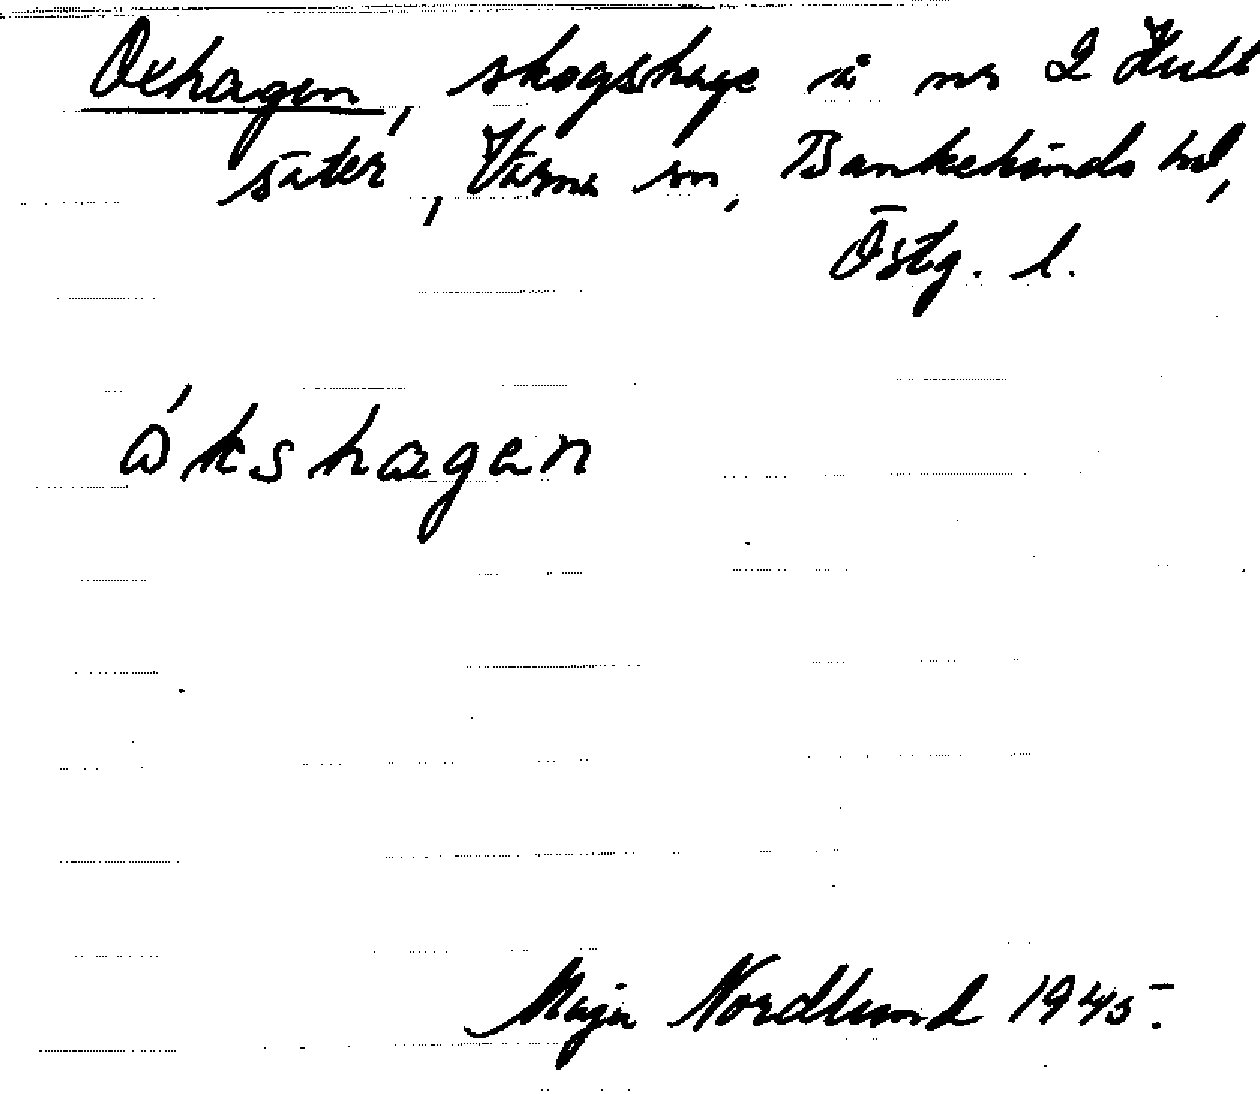 Oxhagen, skogshage å nr 2 Hult
säter, Värna sn, Bankekinds hd,
Östg. l.
ókshagen
Maja Nordlund 1945.